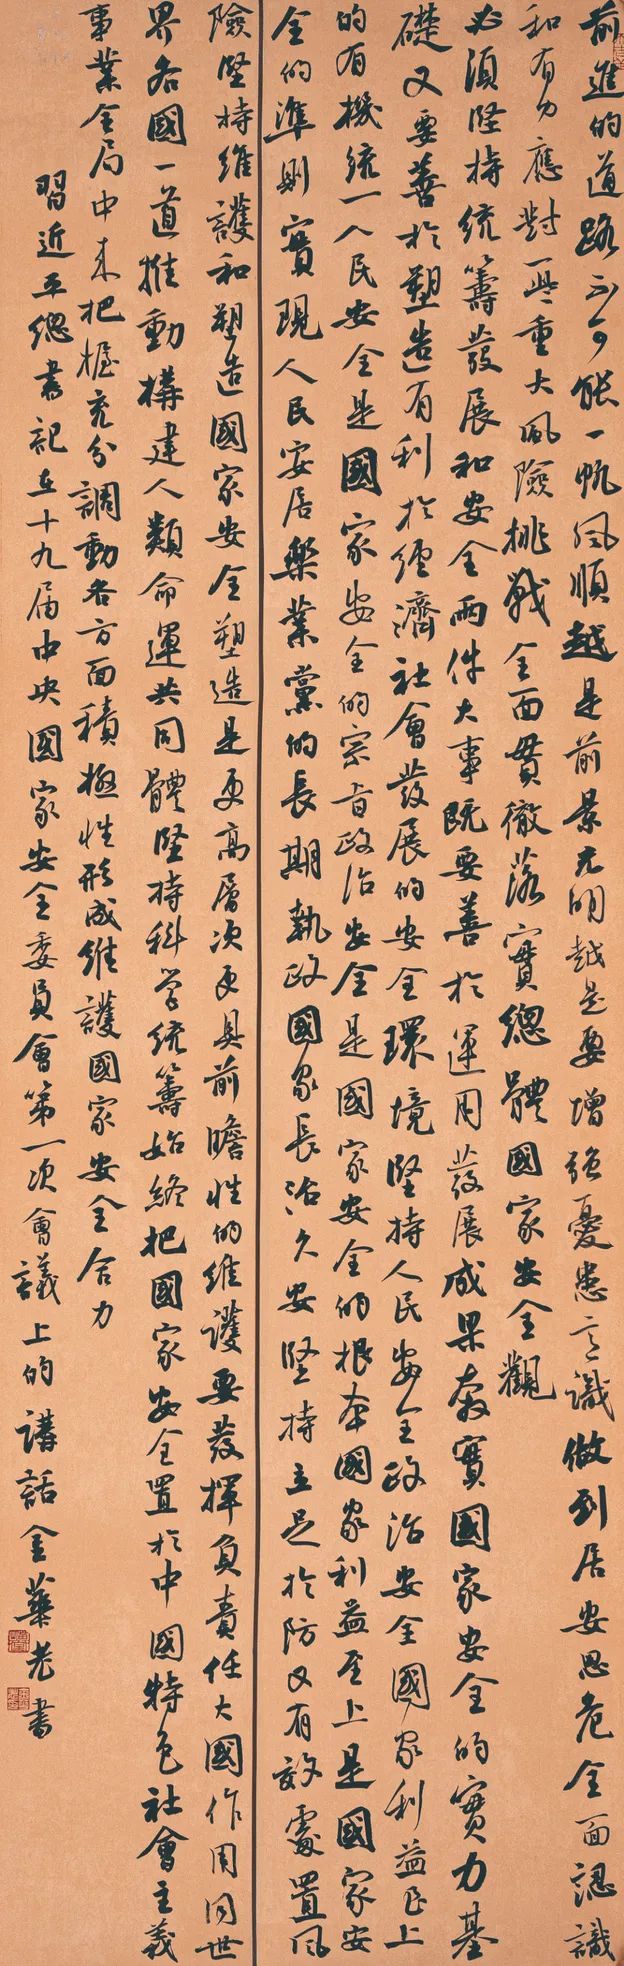 前進的道路不可能一帆風順越是前景光明越是要增強憂患意識做到居安思危全面認識
和有力應對一些重大風險挑戰全面貫徹落實總體國家安全觀
必須堅持統籌發展和安全兩件大事既要善於運用發展成果夯實國家安全的實力基
礎又要善於塑造有利於經濟社會發展的安全環境堅持人民安全政治安全國家利益至上
的有機統一人民安全是國家安全的宗旨政治安全是國家安全的根本國家利益至上是國家安
全的準則實現人民安居樂業黨的長期執政國家長治久安堅持立足於防又有效處置風
險堅持維護和塑造國家安全塑造是更高層次更具前瞻性的維護要發揮負責任大國作用同世
界各國一道推動構建人類命運共同體堅持科學統籌始終把國家安全置於中國特色社會主義
事業全局中來把握充分調動各方面積極性形成維護國家安全合力
習近平總書記在十九屆中央國家安全委員會第一次會議上的講話金華光書